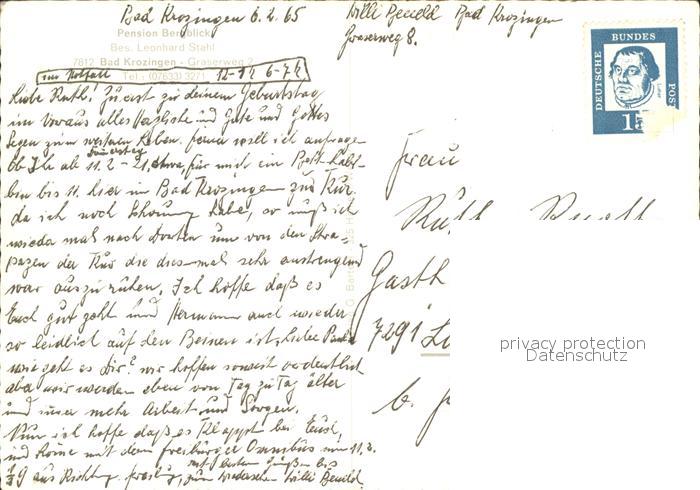 Bad Krozingen 6.2.65
Pension Bergblick
Bes. Leonhard Stahl
7812 Bad Krozingen - Graserweg 2
im Notfall Tel.: (07633) 3271 12-14 6-7 h
Liebe Ruth! Zuerst zu deinem Geburtstag
im Voraus alles herzlichste und Gute und Gottes
Segen zum weiteren Leben. ferner wollt ich anfragen
ob Ihr ab 11.2 - 21. etwa, für mich ein Bett habt
bin bis 11. hier in Bad Krozingen zur Kur.
da ich noch Schonung habe, so muß ich
wieder mal nach um von den Stra-
pazen der Kur die dies-mal sehr anstrengend
war auszuruhen. Ich hoffe daß es
Euch gut geht und Hermann auch wieder
so leidlich auf den Beinen ist, liebe
wie geht es Dir? wir hoffen soweit ordentlich
aber wir werden eben von Tag zu Tag älter
und immer mehr Arbeit und Sorgen.
Nun ich hoffe daß es klappt bei Euch,
und komme mit dem freiburger Omnibus um 11.2.
aus Richtung freiburg, mit besten Grüßen bis
zum Wiedersehen Willi
Willi Bad Krozingen
Graserweg 8.
DEUTSCHE BUNDESPOST
Luther
15
Frau
Gasth
7291
b.
privacy protection
Datenschutz